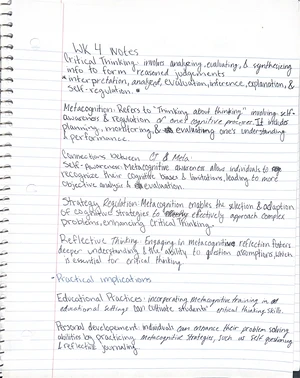 WK 4 Notes
Critical Thinking: involves analyzing, evaluating, & synthesizing
info to form reasoned judgements
* interpretation, analysis, evaluation, inference, explanation, &
self-regulation. *
Metacognition: Refers to "Thinking about thinking" involving self-
awareness & regulation of ones cognitive process. It includes
planning, monitering, & evaluating one's understanding
& performance.
Connections between CT & Meta:
Self-Awareness: Metacognitive awareness allow individuals to
recognize their cognitive biases & limitations, leading to more
objective analysis & evaluation.
Strategy Regulation: Metacognition enables the selection & adaption
of cognitive strategies to effectively approach complex
problems, enhancing critical thinking.
Reflective Thinking: Engaging in metacognitive reflection fosters
deeper understanding & the ability to question assumptions, which
is essential for critical thinking.
- Practical implications
Educational Practices: incorporating metacognitive training in
educational settings can cultivate students' critical thinking skills.
Personal development: individuals can enhance their problem solving
abilities by practicing metacognitive strategies, such as self questioning
& reflective journaling.